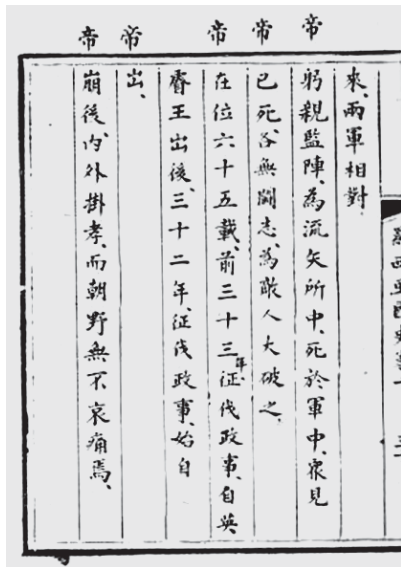 來、兩軍相對
帝躬親監陣、為流矢所中、死於軍中、衆見
帝已死、各無鬪志、為敵人大破之、
帝在位六十五載、前三十三年征伐政事、自英
睿王出後、三十二年、征伐政事、始自
帝出、
帝崩後、內外掛孝、而朝野無不哀痛焉、